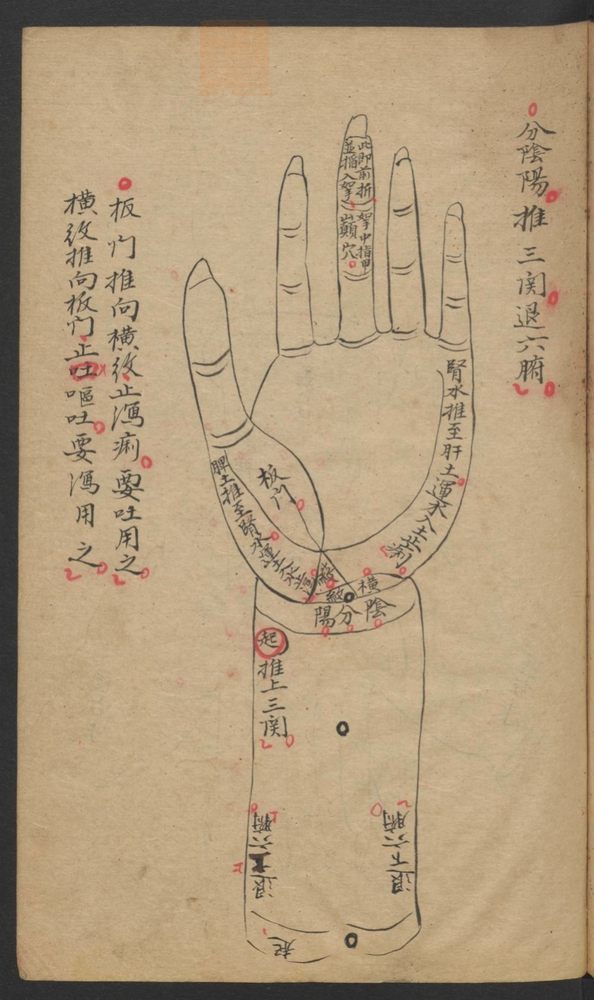 分陰陽推三関退六腑
此即前折
並搯入拏
拏中指甲
巔穴
腎水推至肝土運水入土止痢
板門
脾土推至腎水運土入水
横紋
陰分陽
起
推上三関
退下六腑
退下六腑
起
板门推向横紋止瀉痢要吐用之
横紋推向板门止吐嘔吐要瀉用之